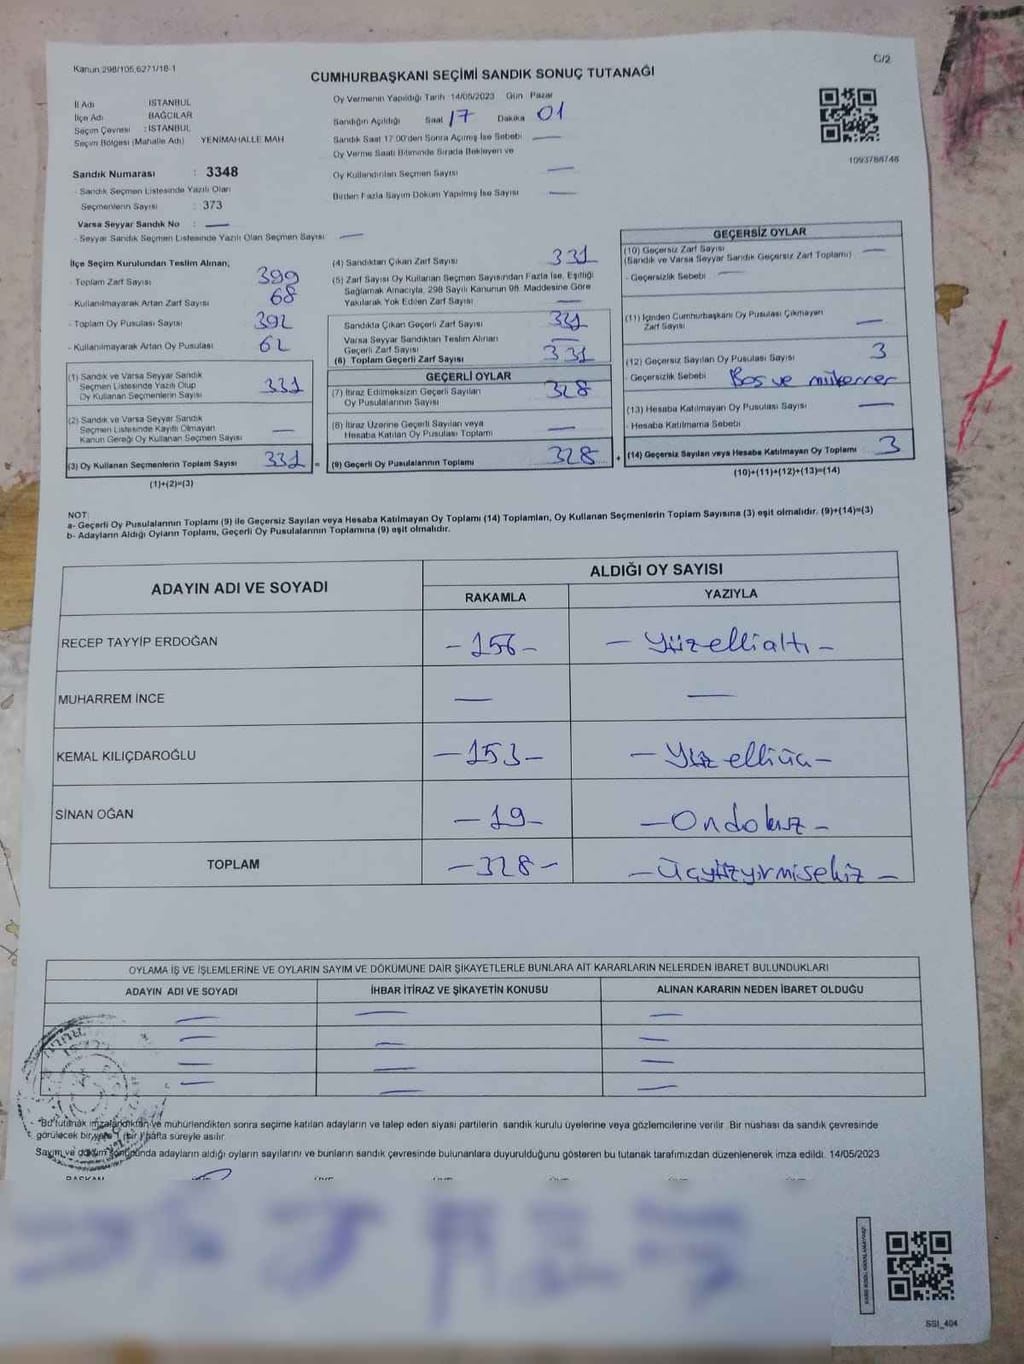 Kanun 298/105,6271/18-1
C/2
CUMHURBAŞKANI SEÇİMİ SANDIK SONUÇ TUTANAĞI
İl Adı : İSTANBUL
İlçe Adı : BAĞCILAR
Seçim Çevresi : İSTANBUL
Seçim Bölgesi (Mahalle Adı) YENİMAHALLE MAH
Oy Vermenin Yapıldığı Tarih 14/05/2023 Gün Pazar
Sandığın Açıldığı Saat 17 Dakika 01
Sandık Saat 17.00'den Sonra Açılmış İse Sebebi —
Oy Verme Saati Bitiminde Sırada Bekleyen ve
Oy Kullandırılan Seçmen Sayısı —
Birden Fazla Sayım Döküm Yapılmış İse Sayısı —
1093788748
Sandık Numarası : 3348
- Sandık Seçmen Listesinde Yazılı Olan
Seçmenlerin Sayısı : 373
Varsa Seyyar Sandık No : —
- Seyyar Sandık Seçmen Listesinde Yazılı Olan Seçmen Sayısı : —
İlçe Seçim Kurulundan Teslim Alınan;
- Toplam Zarf Sayısı 399
- Kullanılmayarak Artan Zarf Sayısı 68
- Toplam Oy Pusulası Sayısı 392
- Kullanılmayarak Artan Oy Pusulası 62
(1) Sandık ve Varsa Seyyar Sandık
Seçmen Listesinde Yazılı Olup
Oy Kullanan Seçmenlerin Sayısı 331
(2) Sandık ve Varsa Seyyar Sandık
Seçmen Listesinde Kayıtlı Olmayan
Kanun Gereği Oy Kullanan Seçmen Sayısı —
(3) Oy Kullanan Seçmenlerin Toplam Sayısı 331 =
(1)+(2)=(3)
(4) Sandıktan Çıkan Zarf Sayısı 331
(5) Zarf Sayısı Oy Kullanan Seçmen Sayısından Fazla İse, Eşitliği
Sağlamak Amacıyla, 298 Sayılı Kanunun 98. Maddesine Göre
Yakılarak Yok Edilen Zarf Sayısı —
Sandıkta Çıkan Geçerli Zarf Sayısı 331
Varsa Seyyar Sandıktan Teslim Alınan
Geçerli Zarf Sayısı —
(6) Toplam Geçerli Zarf Sayısı 331
GEÇERLİ OYLAR
(7) İtiraz Edilmeksizin Geçerli Sayılan
Oy Pusulalarının Sayısı 328
(8) İtiraz Üzerine Geçerli Sayılan veya
Hesaba Katılan Oy Pusulası Toplamı —
(9) Geçerli Oy Pusulalarının Toplamı 328 +
GEÇERSİZ OYLAR
(10) Geçersiz Zarf Sayısı
(Sandık ve Varsa Seyyar Sandık Geçersiz Zarf Toplamı) —
- Geçersizlik Sebebi —
(11) İçinden Cumhurbaşkanı Oy Pusulası Çıkmayan
Zarf Sayısı —
(12) Geçersiz Sayılan Oy Pusulası Sayısı 3
- Geçersizlik Sebebi Boş ve mükerrer
(13) Hesaba Katılmayan Oy Pusulası Sayısı —
- Hesaba Katılmama Sebebi
(14) Geçersiz Sayılan veya Hesaba Katılmayan Oy Toplamı 3
(10)+(11)+(12)+(13)=(14)
NOT:
a- Geçerli Oy Pusulalarının Toplamı (9) ile Geçersiz Sayılan veya Hesaba Katılmayan Oy Toplamı (14) Toplamları, Oy Kullanan Seçmenlerin Toplam Sayısına (3) eşit olmalıdır. (9)+(14)=(3)
b- Adayların Aldığı Oyların Toplamı, Geçerli Oy Pusulalarının Toplamına (9) eşit olmalıdır.
ADAYIN ADI VE SOYADI
ALDIĞI OY SAYISI
RAKAMLA YAZIYLA
RECEP TAYYİP ERDOĞAN -156- - Yüzellialtı -
MUHARREM İNCE — —
KEMAL KILIÇDAROĞLU -153- - Yüzelliüç -
SİNAN OĞAN -19- - Ondokuz -
TOPLAM -328- - Üçyüzyirmisekiz -
OYLAMA İŞ VE İŞLEMLERİNE VE OYLARIN SAYIM VE DÖKÜMÜNE DAİR ŞİKAYETLERLE BUNLARA AİT KARARLARIN NELERDEN İBARET BULUNDUKLARI
ADAYIN ADI VE SOYADI İHBAR İTİRAZ VE ŞİKAYETİN KONUSU ALINAN KARARIN NEDEN İBARET OLDUĞU
— — —
— — —
— — —
— — —
"Bu tutanak imzalandıktan ve mühürlendikten sonra seçime katılan adayların ve talep eden siyasi partilerin sandık kurulu üyelerine veya gözlemcilerine verilir. Bir nüshası da sandık çevresinde
görülecek bir yere 1 (bir) hafta süreyle asılır.
Sayım ve döküm sonucunda adayların aldığı oyların sayılarını ve bunların sandık çevresinde bulunanlara duyurulduğunu gösteren bu tutanak tarafımızdan düzenlenerek imza edildi. 14/05/2023
BAŞKAN
SSI_404